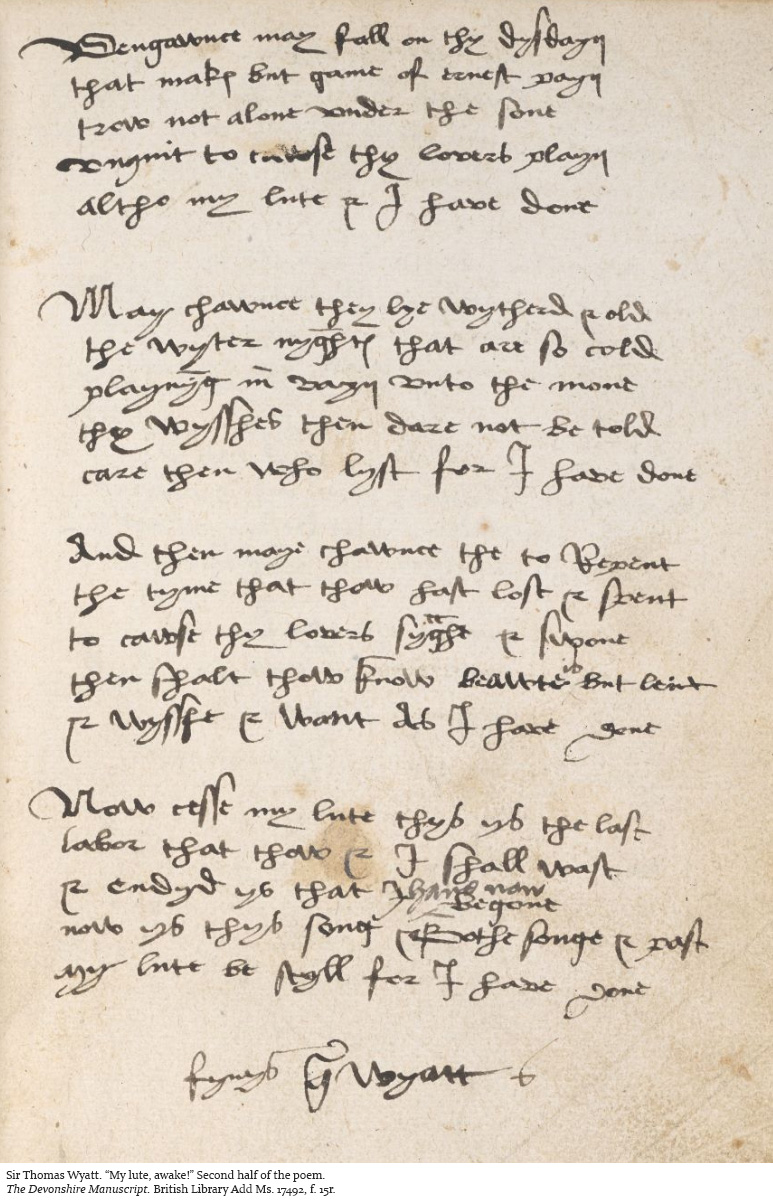 Vengawnce may fall on thy dysdayn
that makes but game of ernest payn
trow not alone vnder the sone
vnquit to cawse thy lovers playn
altho my lute & I have done
May chawnce they lye wytherd & old
the wyter nyghtes that are so cold
playnyng in vayn vnto the mone
thy wysshes then dare not be told
care then who lyst for I have done
And then maye chawnce the to Repent
the tyme that thow hast lost & spent
to cawse thy lovers syght & swone
then shalt thow know beawte is but lent
& wysshe & want As I have done
Now cesse my lute thys ys the last
labor that thow & I shall wast
& endyd ys that I have now begone
now ys thys song & Bothe songe & past
my lute be styll for I have done
fynys Wyatt
Sir Thomas Wyatt. “My lute, awake!” Second half of the poem.
The Devonshire Manuscript. British Library Add Ms. 17492, f. 15r.